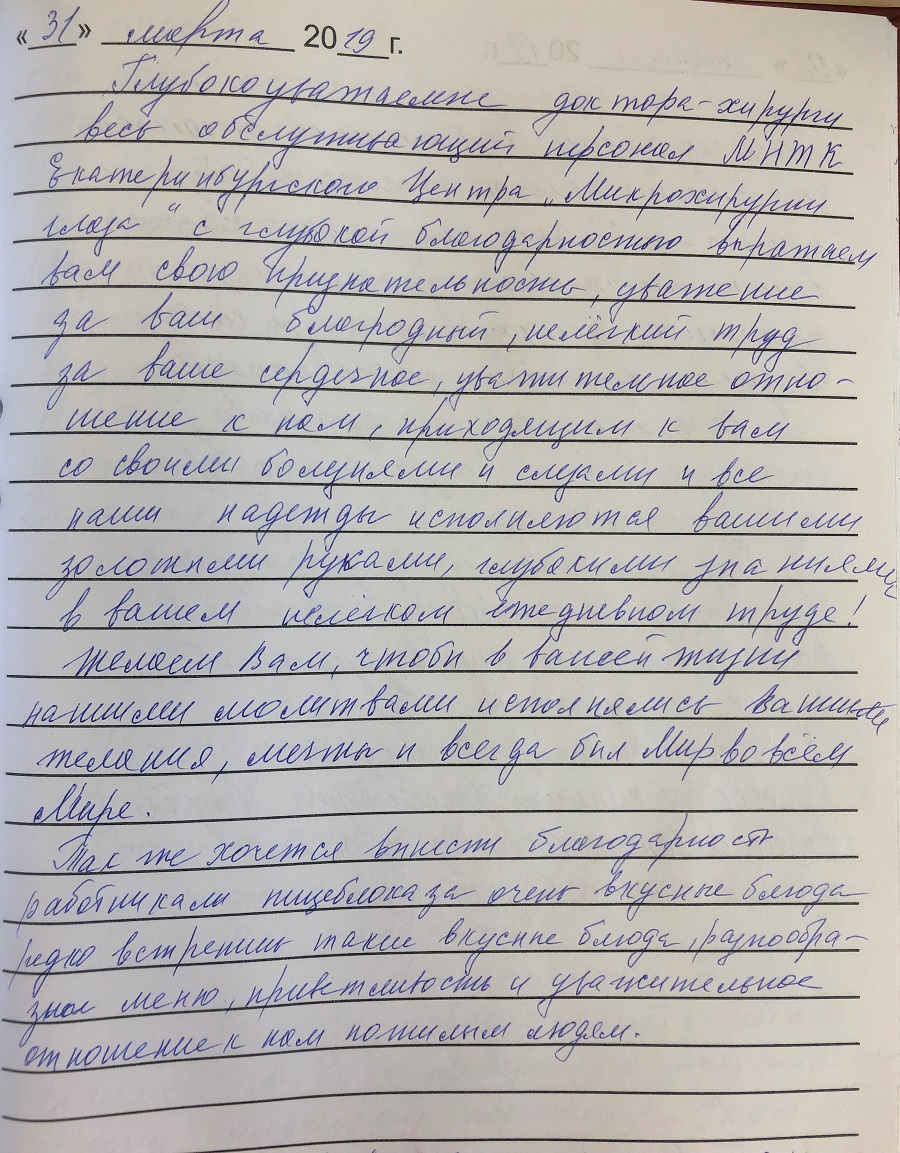 «31» марта 2019 г.
Глубокоуважаемые доктора-хирурги
весь обслуживающий персонал МНТК
Екатеринбургского Центра „Микрохирургии
глаза“ с глубокой благодарностью выражаем
вам свою признательность, уважение
за ваш благродный, нелёгкий труд
за ваше сердечное, уважительное отно-
шение к нам, приходящим к вам
со своими болезнями и слезами и все
наши надежды исполняются вашими
золотыми руками, глубокими знаниями
в вашем нелёгком ежедневном труде!
Желаем Вам, чтобы в вашей жизни
нашими молитвами исполнялись Ваши
желания, мечты и всегда был Мир во всём
Мире.
Так же хочется внести благодарность
работникам пищеблока за очень вкусные блюда
редко встретишь такие вкусные блюда, разнообра-
зное меню, приветливость и уважительное
отношение к нам пожилым людям.